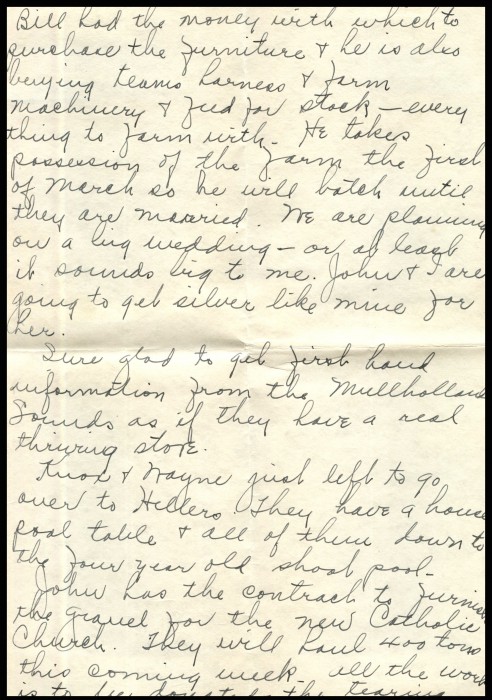 Bill had the money with which to
purchase the furniture & he is also
buying teams harness & farm
machinery & feed for stock — every
thing to farm with. He takes
possession of the farm the first
of March so he will batch until
they are married. We are planning
on a big wedding — or at least
it sounds big to me. John & I are
going to get silver like mine for
her.
Sure glad to get first hand
information from the Mullhollands
Sounds as if they have a real
thriving store.
Knox & Wayne just left to go
over to Hillers. They have a house
pool table & all of them down to
the four year old shoot pool.
John has the contract to furnish
the gravel for the new Catholic
Church. They will haul 400 tons
this coming week. All the work
is to be donated the